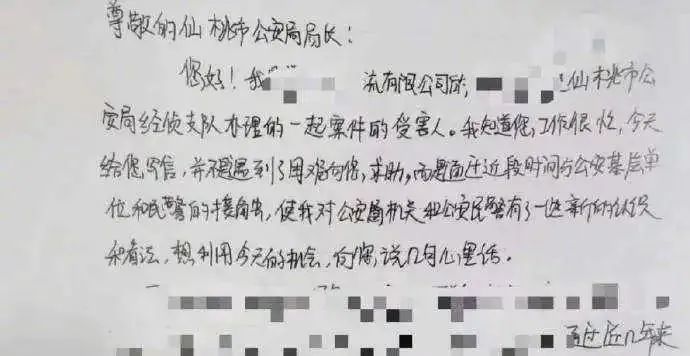 尊敬的仙桃市公安局局长：
您好！我 流有限公司的， 是仙桃市公
安局经侦支队办理的一起案件的受害人。我知道您工作很忙，今天
给您写信，并不是遇到了困难向您求助，而是通过近段时间与公安基层单
位和民警的接触，使我对公安机关和公安民警有了一些新的认识
和看法，想利用今天的机会，向您说几句心里话。
通过近几年来